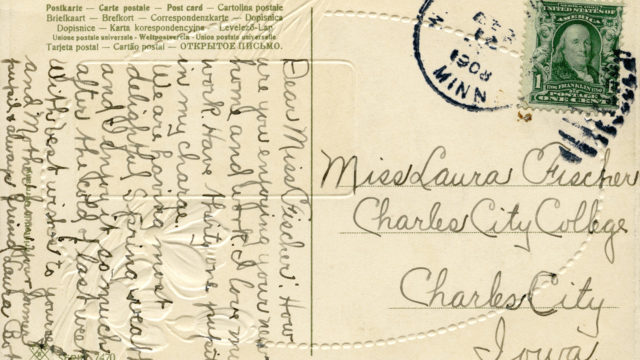 Postkarte - Carte postale - Post card - Cartolina postale
Briefkaart - Brefkort - Correspondenzkarte - Dopisnica
Dopisnice - Karta korespondencyjna - Levelező-Lap
Unione postale universale - Weltpostverein - Union postale universelle
Tarjeta postal - Cartão postal - ОТКРЫТОЕ ПИСЬМО.
Dear Miss Fischer: How
are you enjoying your new
home and work. I love my
work. Have thirty-one pupils
in my charge.
We are having most
delightful Spring weath
and I enjoy it so much
after the cold of last week
With best wishes to yourse
and Mother from your former
pupil & always friend Laura
MINN
1908
FRANKLIN
POSTAGE
ONE CENT
Miss Laura Fischer
Charles City College
Charles City
Iowa